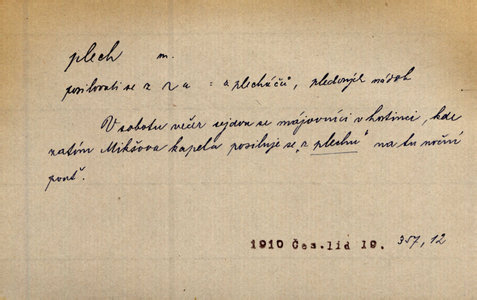 plech m.
posilovati se z za : a plecháčů, plechových nádob
V sobotu večer sejdou se májovníci v hostinci, kde
zatím Mikšova kapela posiluje se „z plechu" na tu noční
pouť.
1910 Čes. lid 19. 357, 12